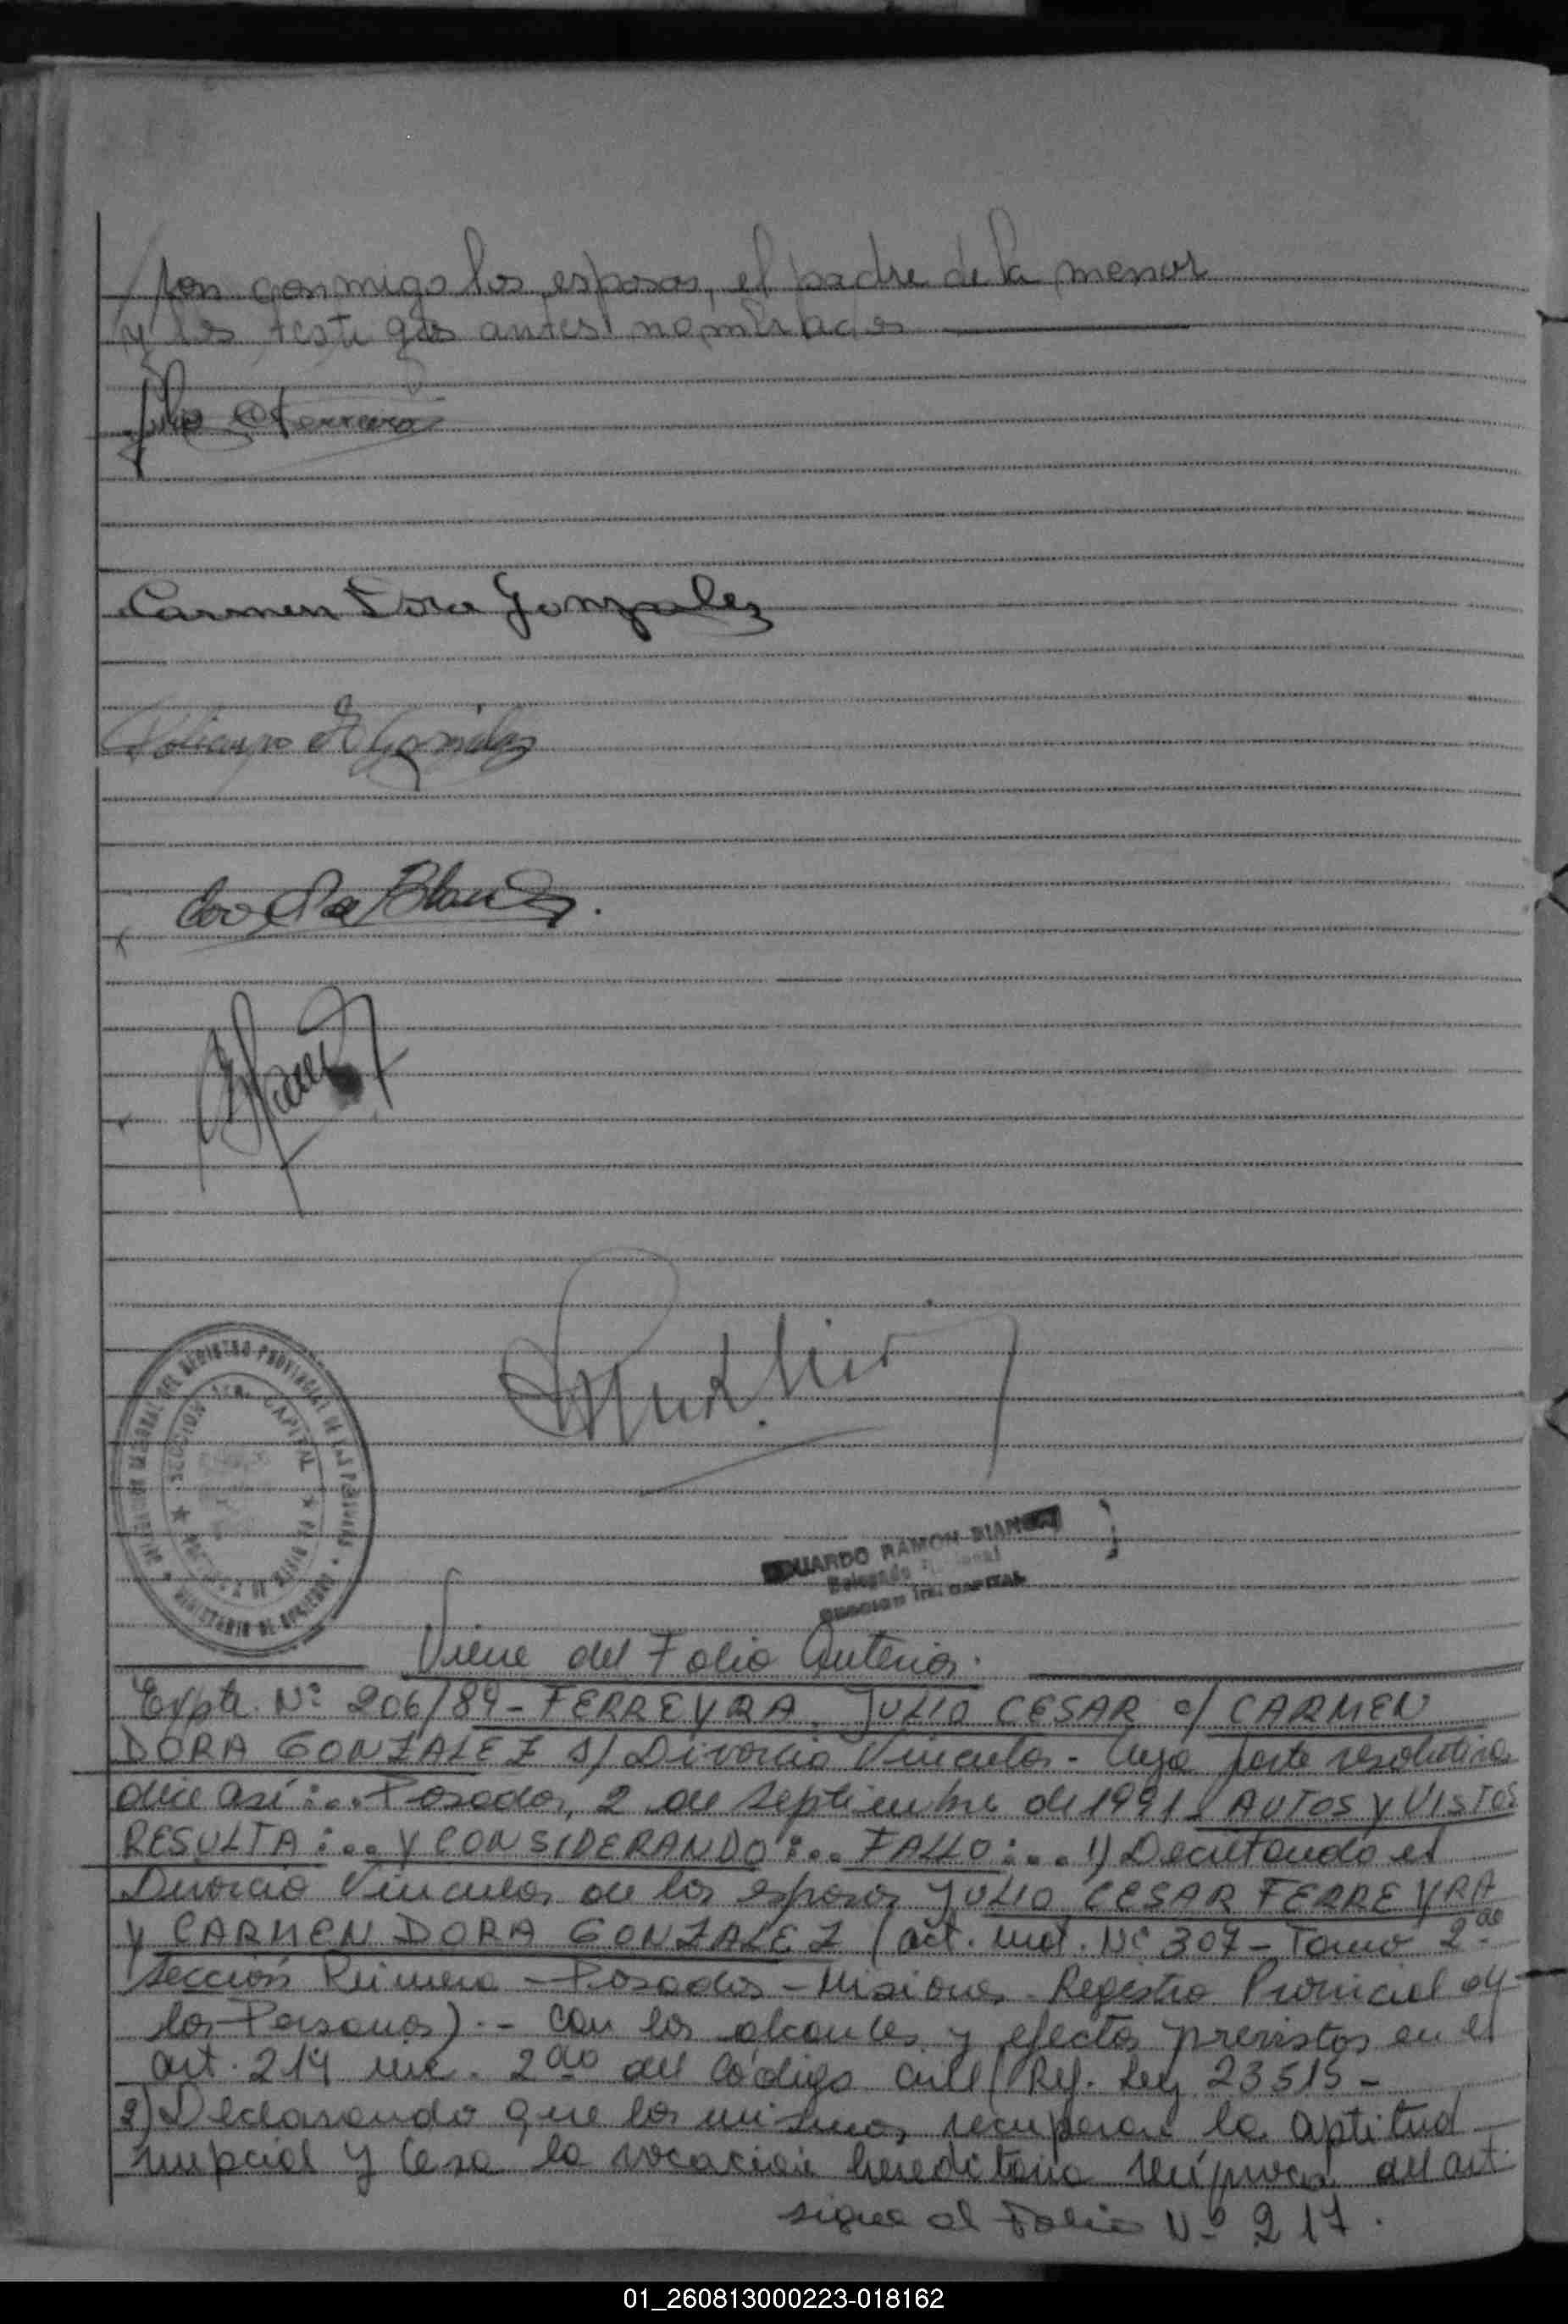 /ron conmigo los esposos, el padre de la menor
y los testigos antes nombrados
Carmen Dora Gonzalez
DIRECCION GENERAL DEL REGISTRO PROVINCIAL DE LAS PERSONAS
SECCION 1ra. CAPITAL
MINISTERIO DE GOBIERNO
EDUARDO RAMON
Delegado
SECCION 1ra. CAPITAL
Viene del Folio Anterior.
Expte. Nº 206/89 - FERREYRA, JULIO CESAR c/ CARMEN
DORA GONZALEZ S/ Divorcio Vincular - Cuya parte resolutiva
dice así:... Posadas, 2 de Septiembre de 1991 - AUTOS Y VISTOS
RESULTA:... Y CONSIDERANDO:... FALLO:... 1) Decretando el
Divorcio Vincular de los esposos JULIO CESAR FERREYRA
Y CARMEN DORA GONZALEZ (act. mat. Nº 307 - Tomo 2do
Sección Primera - Posadas - Misiones - Registro Provincial de
las Personas).- Con los alcances y efectos previstos en el
art. 214 inc. 2do del Código Civil (Ref. Ley 23515 -
2) Declarando que los mismos recuperan la aptitud
nupcial y cesa la vocación hereditaria recíproca del art.
sigue al Folio Nº 217.
01_260813000223-018162